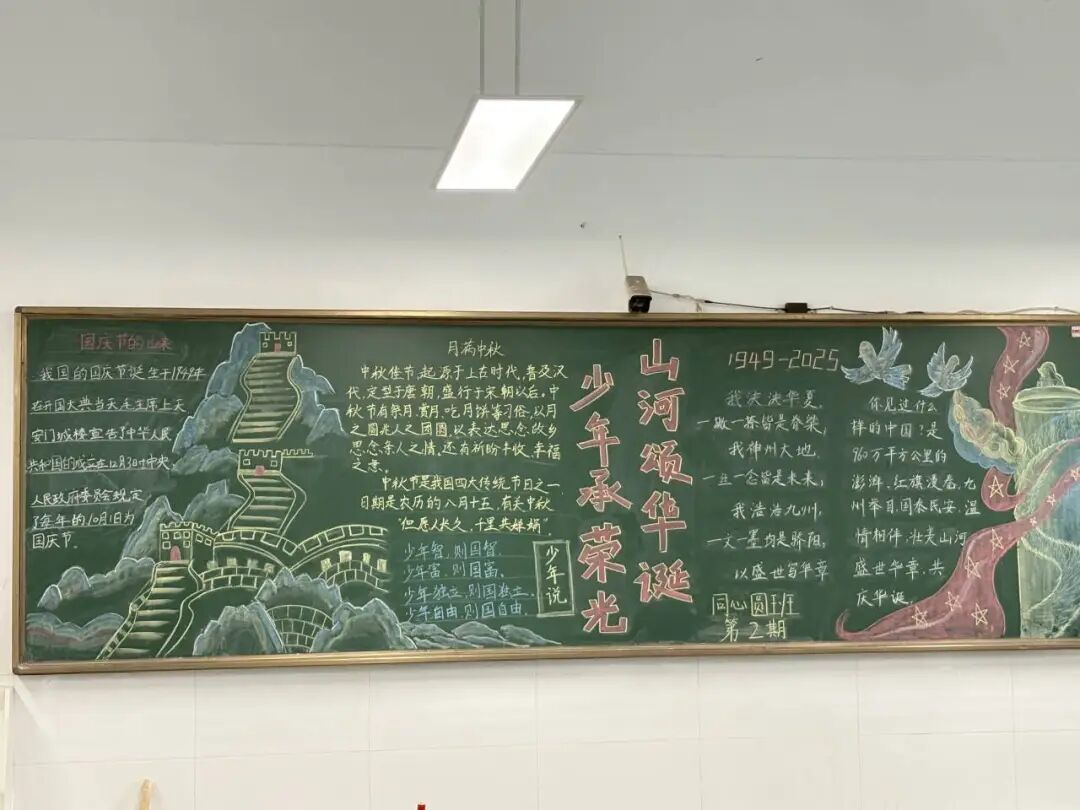 国庆节的由来
我国的国庆节诞生于1949年
在开国大典当天毛主席上天
安门城楼宣告了中华人民
共和国的成立在12月3日中央
人民政府委员会规定
了每年的10月1日为
国庆节。
月满中秋
中秋佳节,起源于上古时代,普及汉
代,定型于唐朝,盛行于宋朝以后。中
秋节有祭月、赏月、吃月饼等习俗,以月
之圆兆人之团圆,以表达思念故乡
思念亲人之情,还有祈盼丰收、幸福
之意。
中秋节是我国四大传统节日之一,
日期是农历的八月十五,有关中秋
"但愿人长久,千里共婵娟"
少年智,则国智,
少年富,则国富,
少年独立,则国独立,
少年自由,则国自由。
少年说
山河颂华诞
少年承荣光
1949-2025
我泱泱华夏,
一撇一捺皆是脊梁,
我神州大地,
一丘一念皆是未来,
我浩浩九州,
一文一墨均是骄阳,
以盛世写华章
同心圆班
第2期
你见过什么
样的中国?是
960万平方公里的
澎湃,红旗漫卷,九
州举目,国泰民安,温
情相伴,壮美山河
盛世华章,共
庆华诞。